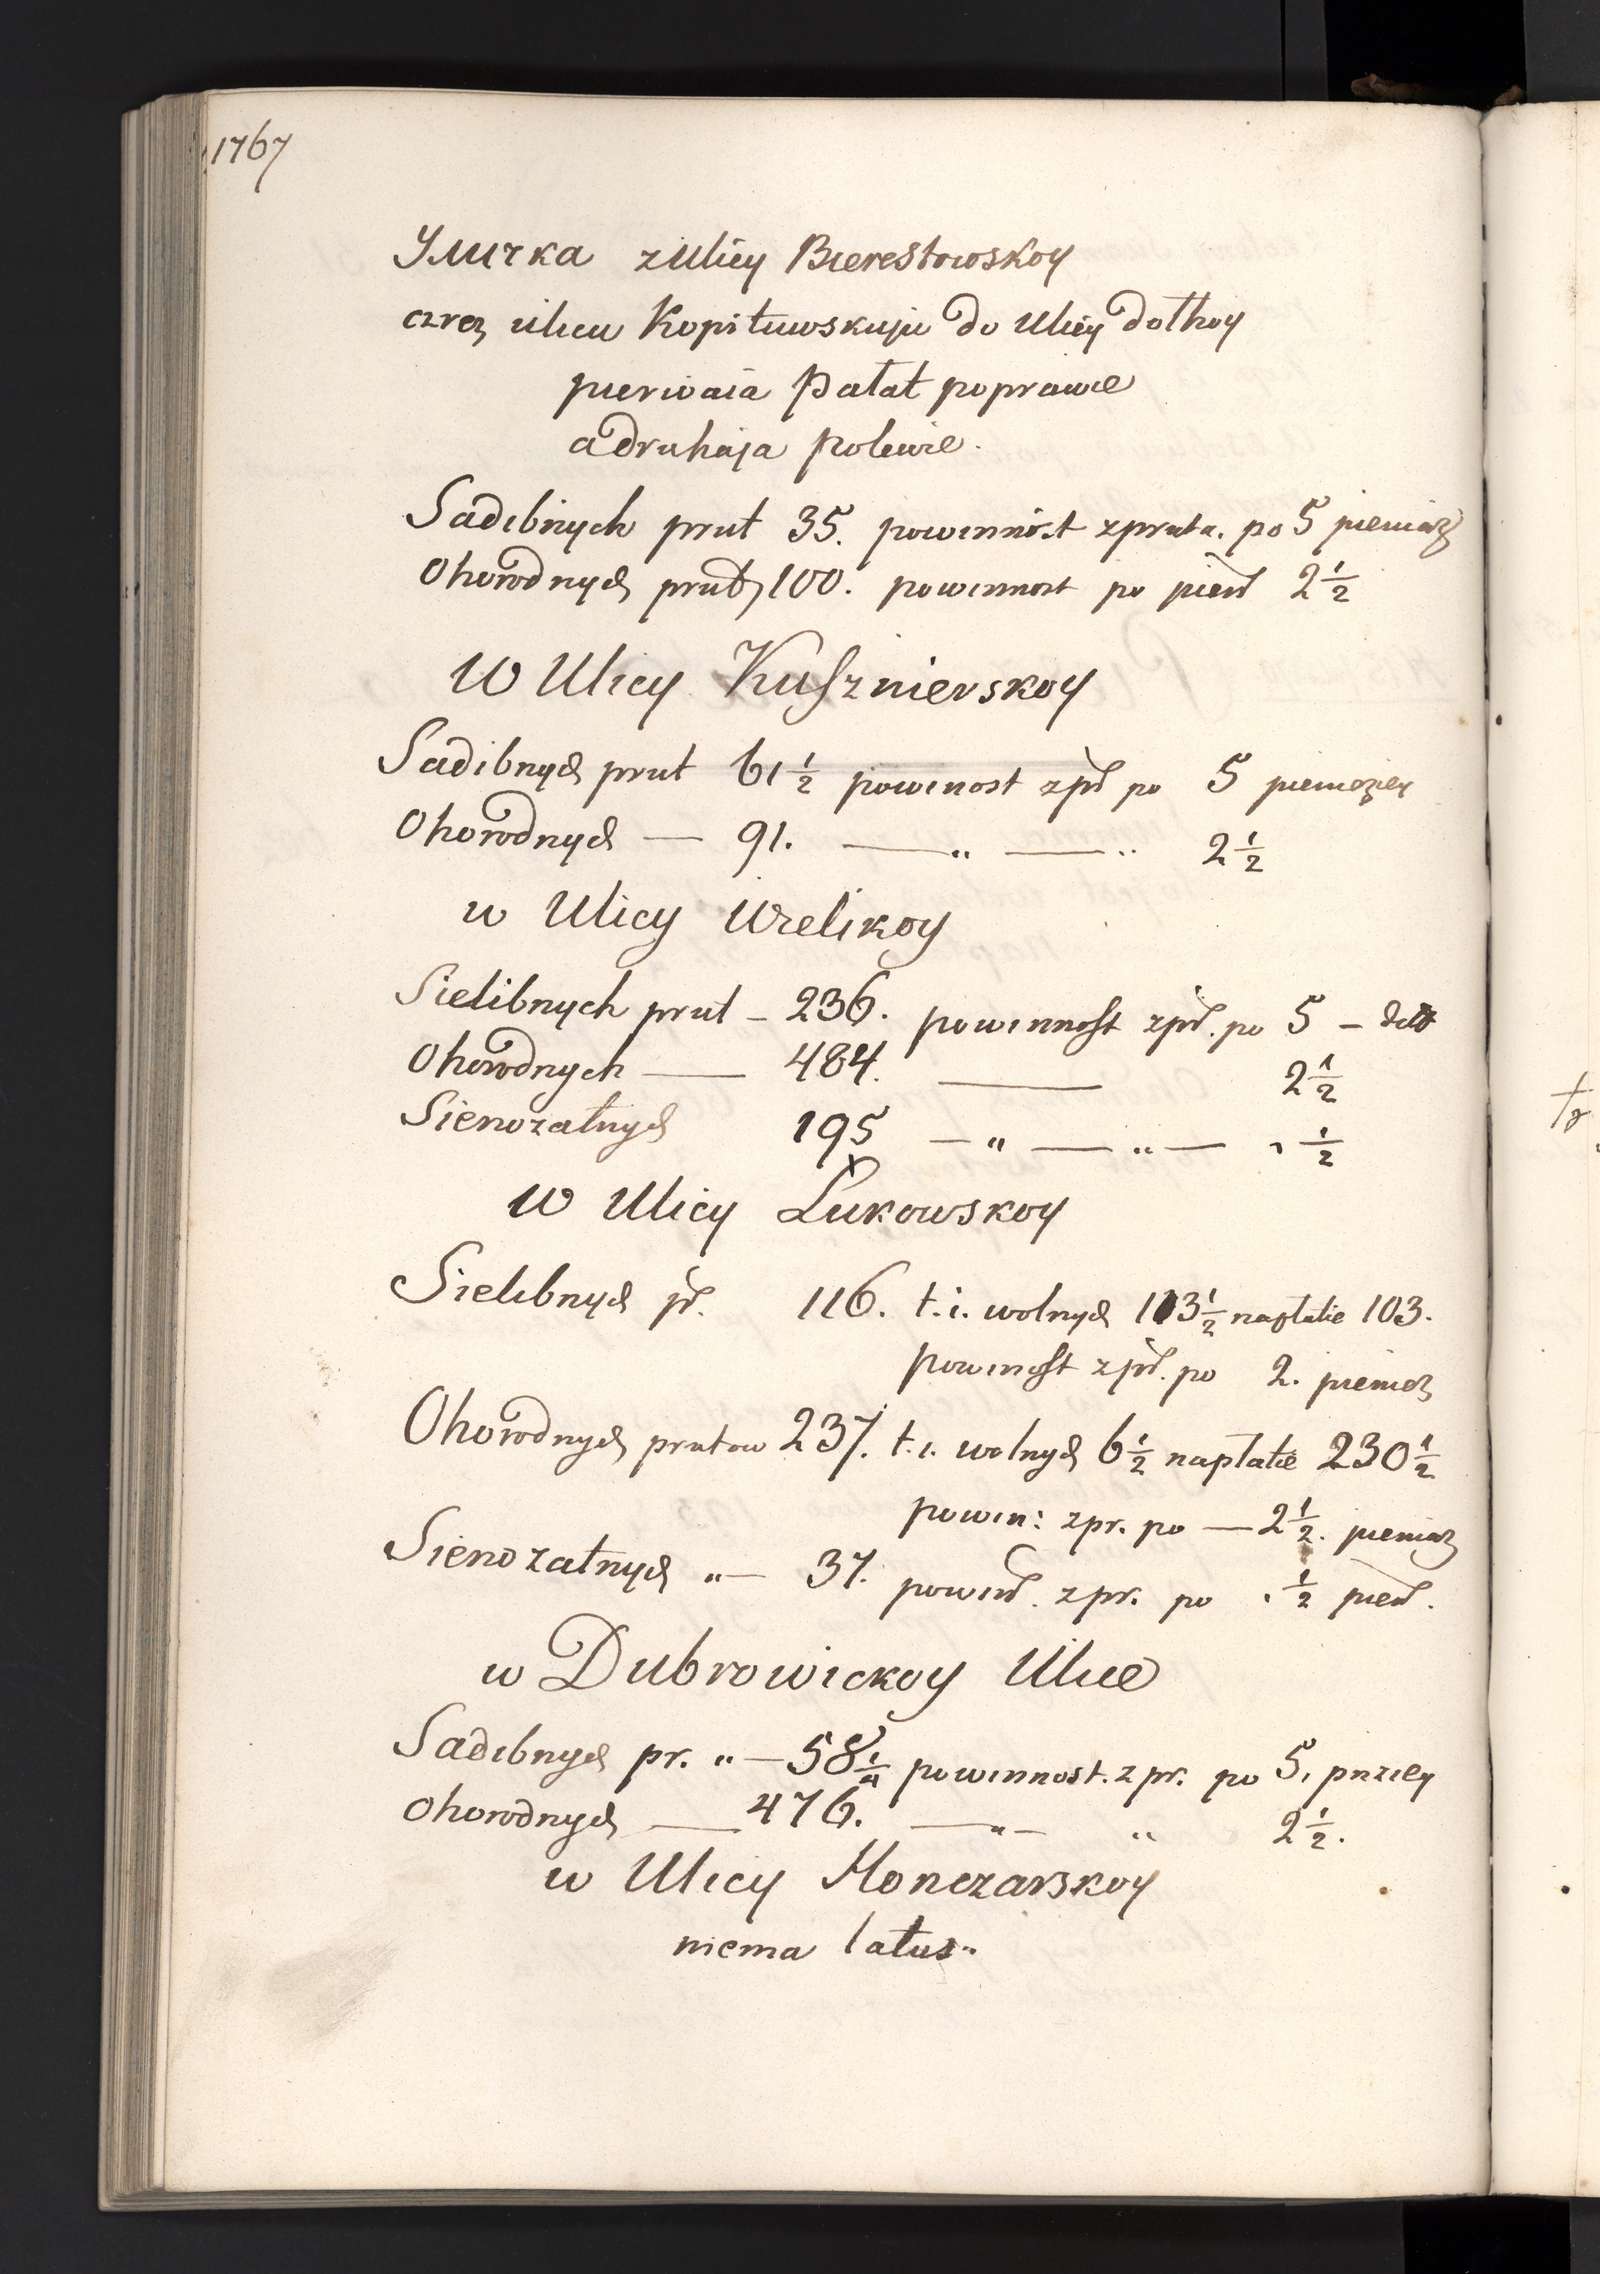 1767
Уличка z Ulicy Bierestowskoy
czrez ulicu Kopiłuwskuju do Ulicy dołhoy
pierwaia Pałat poprawie
a druhaja polewie.
Sadibnych prut 35. powinnost z pruta. po 5 pieniaz
Ohorodnych prutz 100. powinnost po pień 2 1/2
W Ulicy Kuszmierskoy
Sadibnych prut 61 1/2 powinost z pr po 5 pieniezey
Ohorodnych — 91. —— „ —— „ 2 1/2
w Ulicy Wielikoy
Sielibnych prut – 236. powinnost z pr. po 5 – detto
Ohorodnych —— 484. ——— 2 1/2
Sienozatnych 195 — „ —— „ — „ 1/2
W Ulicy Łukowskoy
Sielibnych pr. 116. t. i. wolnych 113 1/2 napłatie 103.
powinost z pr. po 2. pieniez
Ohorodnych prutow 237. t. i. wolnych 6 1/2 napłatie 230 1/2
powin: z pr. po — 2 1/2. pieniaz
Sienozatnych „— 37. powin. z pr. po „ 1/2 pien.
w Dubrowickoy Ulice
Sadibnych pr. „— 58 1/2 powinnost. z pr. po 5, pnziey
Ohorodnych —— 476. —„— „ 2 1/2.
w Ulicy Honczarskoy
niema latus„